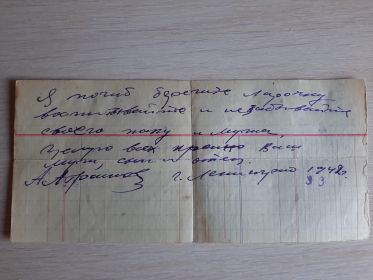 Я погиб берегите Ларочку
воспитывайте и незабывайте
своего папу и мужа,
Целую всех крепко Ваш
муж, сын и отец.
г. Ленинград 1942г.